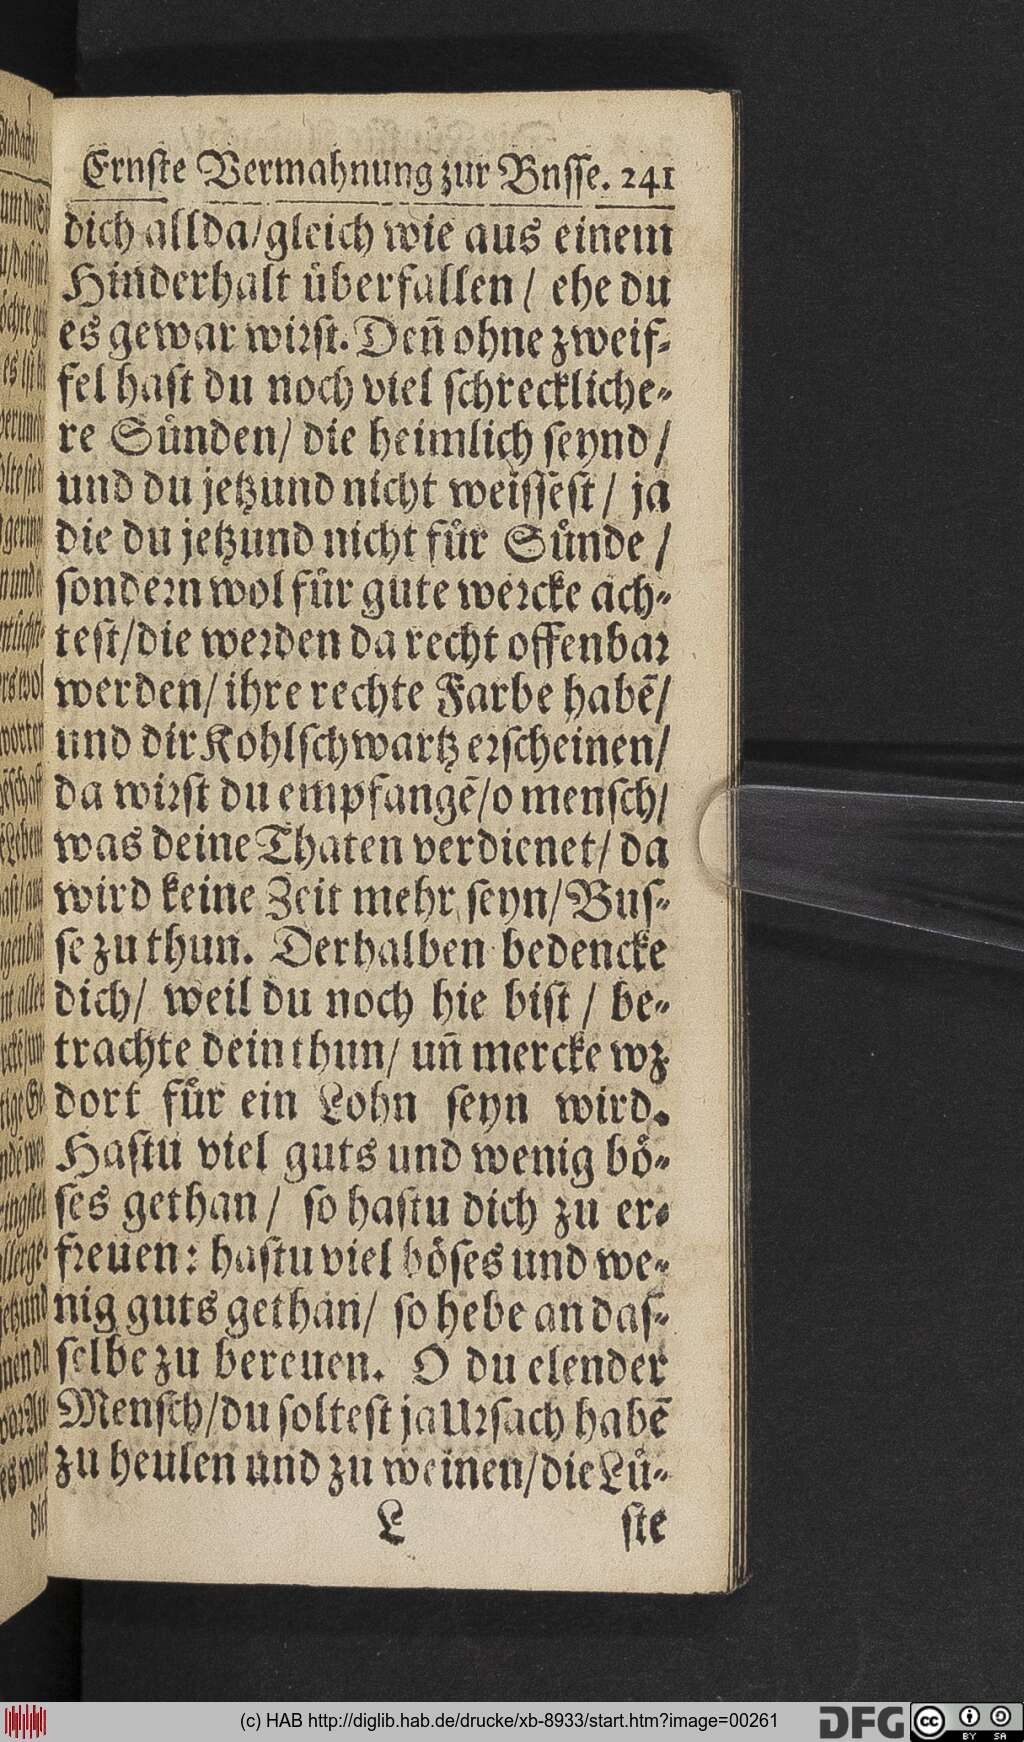 Ernste Vermahnung zur Bnsse. 241
dich allda/gleich wie aus einem
Hinderhalt uͤberfallen / ehe du
es gewar wirst. Deñ ohne zweif-
fel hast du noch viel schreckliche-
re Suͤnden/ die heimlich seynd /
und du jetzund nicht weissest / ja
die du jetzund nicht fuͤr Suͤnde /
sondern wol fuͤr gute wercke ach-
test/die werden da recht offenbar
werden/ ihre rechte Farbe habẽ/
und dir Kohlschwartz erscheinen/
da wirst du empfangẽ/o mensch/
was deine Thaten verdienet/ da
wird keine Zeit mehr seyn/Bus-
se zu thun. Derhalben bedencke
dich/ weil du noch hie bist / be-
trachte dein thun/ uñ mercke wz
dort fuͤr ein Lohn seyn wird.
Hastu viel guts und wenig boͤ-
ses gethan / so hastu dich zu er-
freuen: hastu viel boͤses und we-
nig guts gethan/ so hebe an das-
selbe zu bereuen. O du elender
Mensch/du soltest ja Ursach habẽ
zu heulen und zu weinen/die Luͤ-
L ste
(c) HAB http://diglib.hab.de/drucke/xb-8933/start.htm?image=00261
DFG cc BY SA